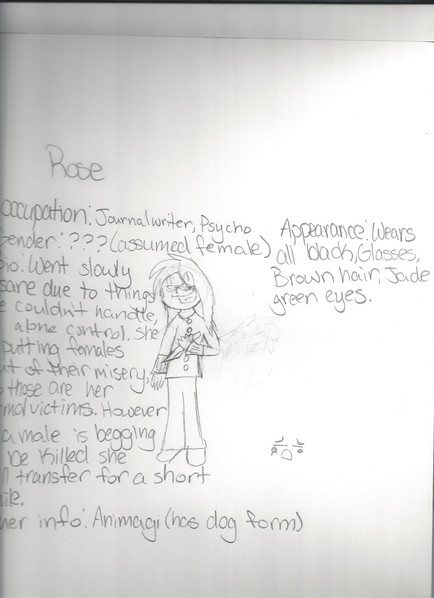 Rose
occupation: Journal writer, Psycho
Gender: ??? (assumed female)
Bio: Went slowly
sane due to things
e couldn't handle,
alone control. she
putting females
ut of their misery,
o those are her
mal victims. However
a male is begging
be killed she
ll transfer for a short
ile.
her info: Animagi (has dog form)
Appearance: Wears
all black, Glasses,
Brown hair, Jade
green eyes.